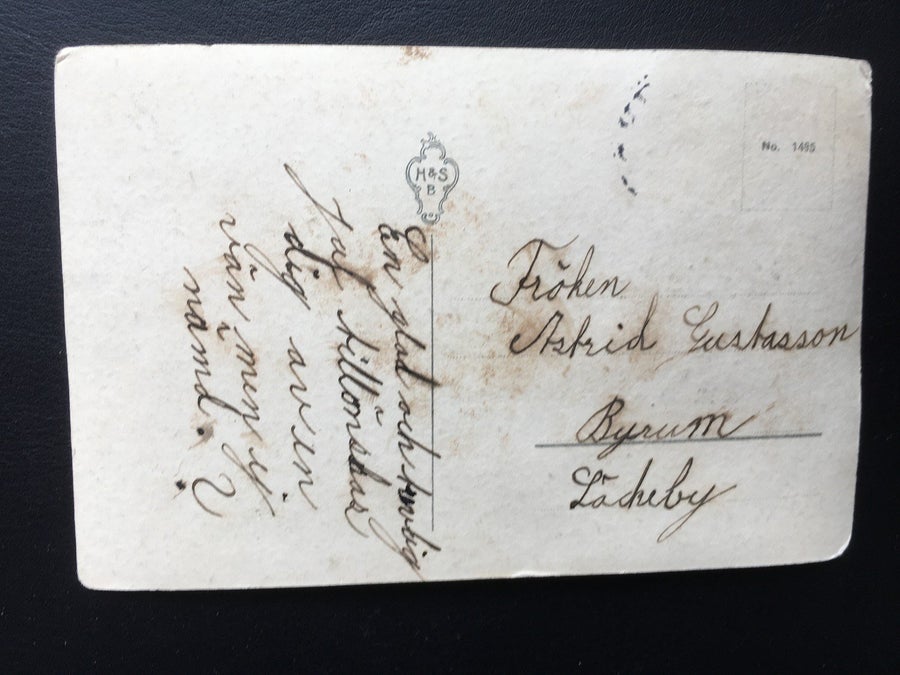 No. 1495
H&S
B
Fröken
Astrid Gustasson
Byrum
Löckeby
En glad och
Jul tillönskas
dig av en
vän min ej
nämd. ?